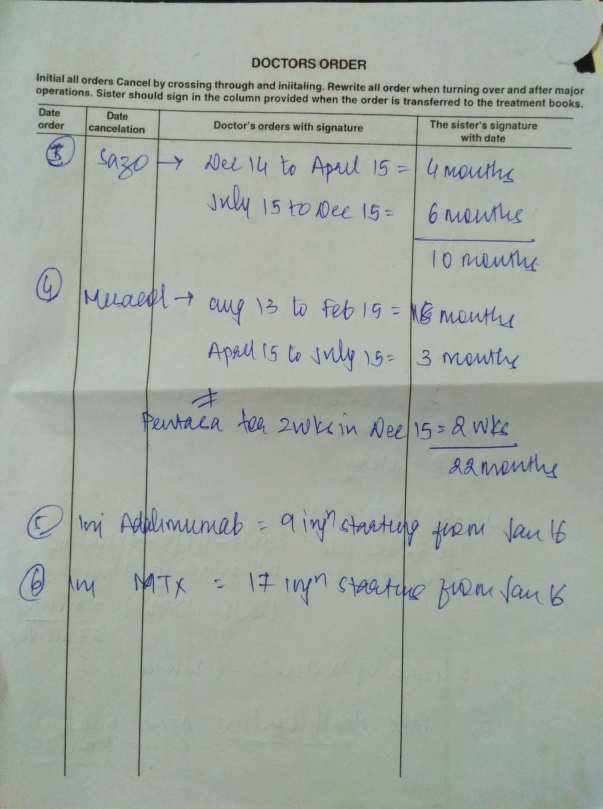 DOCTORS ORDER
Initial all orders Cancel by crossing through and iniitaling. Rewrite all order when turning over and after major
operations. Sister should sign in the column provided when the order is transferred to the treatment books.
Date order | Date cancelation | Doctor's orders with signature | The sister's signature with date
③ Sazo → Dec 14 to April 15 = 4 months
July 15 to Dec 15 = 6 months
10 months
④ Mesacol → aug 13 to Feb 15 = months
April 15 to July 15 = 3 months
Pentasa for 2 wks in Dec 15 = 2 wks
22 months
⑤ Inj Adalimumab = 9 injn starting from Jan 16
⑥ Inj MTX = 17 injn starting from Jan 16